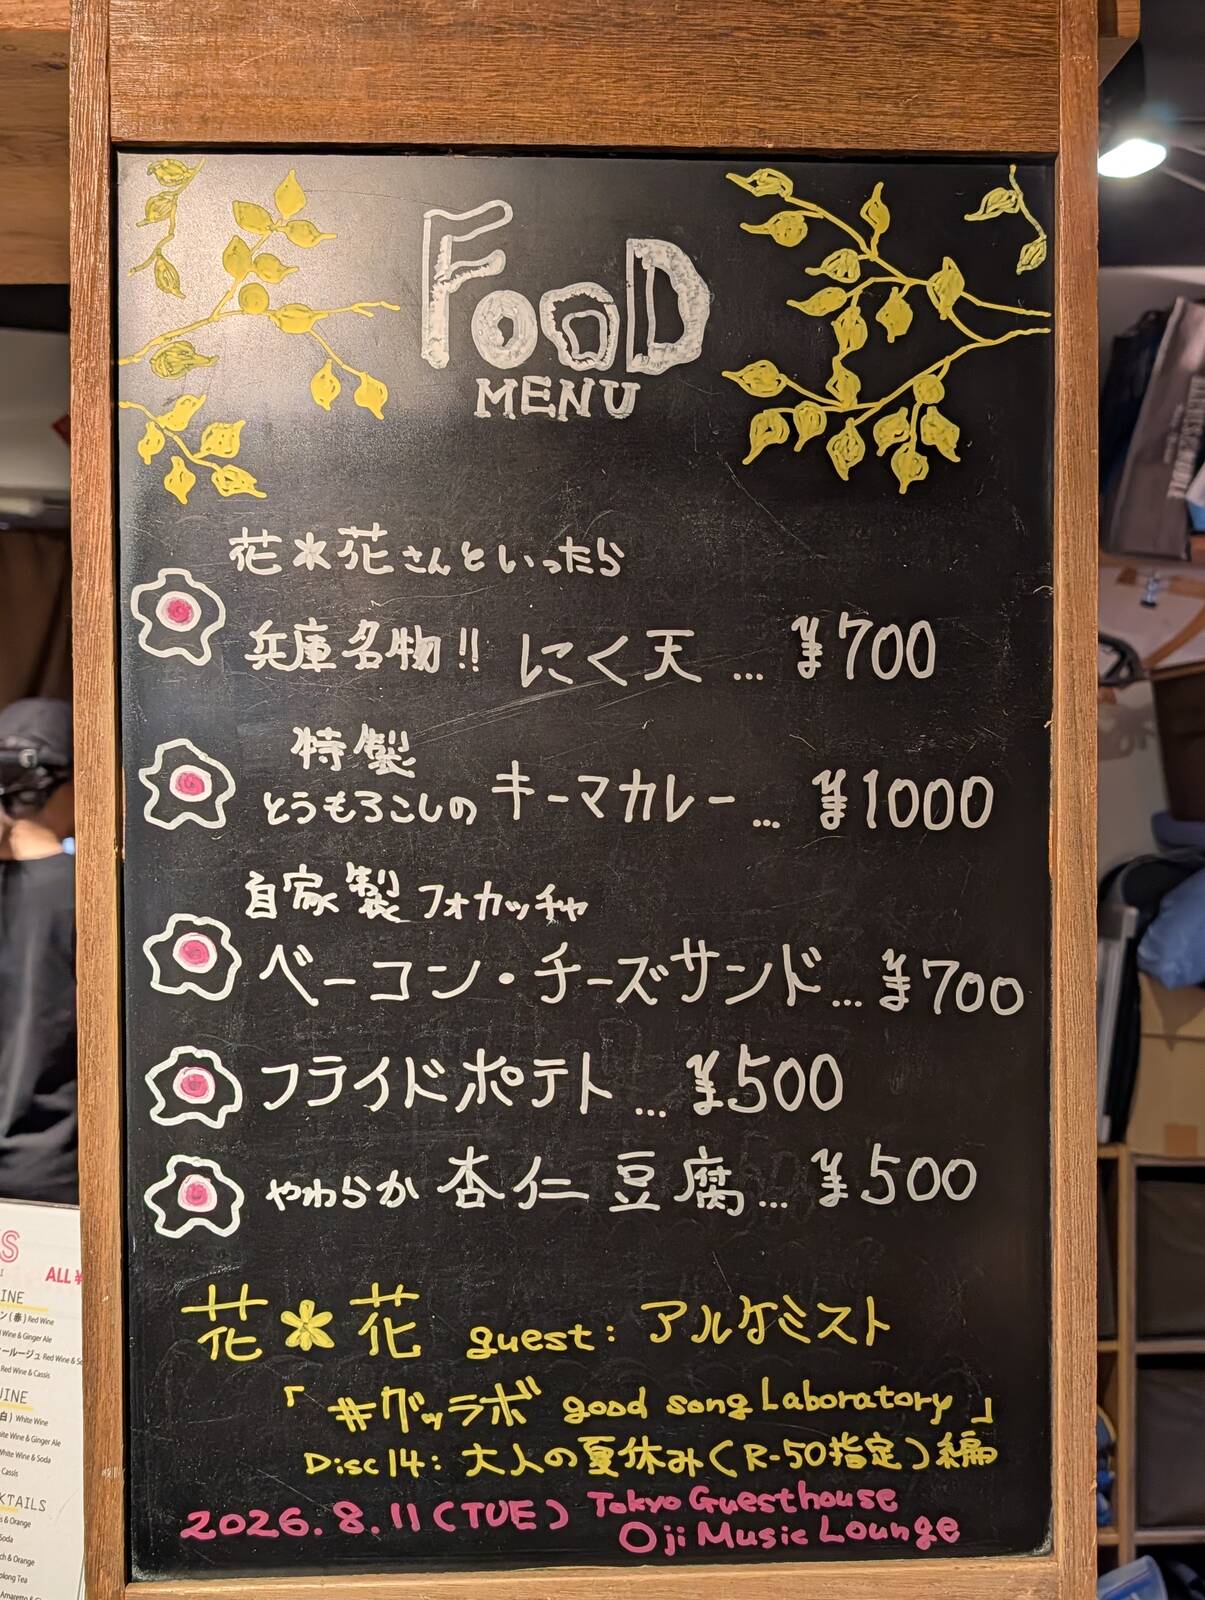 FOOD
MENU
花*花さんといったら
兵庫名物!! にく天 … ¥700
特製
とうもろこしの キーマカレー … ¥1000
自家製 フォカッチャ
ベーコン・チーズサンド … ¥700
フライドポテト … ¥500
やわらか 杏仁豆腐 … ¥500
花*花 guest: アルケミスト
「#グッラボ good song Laboratory」
Disc 14: 大人の夏休み(R-50指定)編
2026.8.11(TUE) Tokyo Guesthouse
Oji Music Lounge
S
ALL ¥
INE
ン(赤) Red Wine
Wine & Ginger Ale
ールージュ Red Wine & So
Red Wine & Cassis
INE
白) White Wine
ite Wine & Ginger Ale
White Wine & Soda
Cassis
KTAILS
s & Orange
Soda
ch & Orange
olong Tea
Amaretto & G